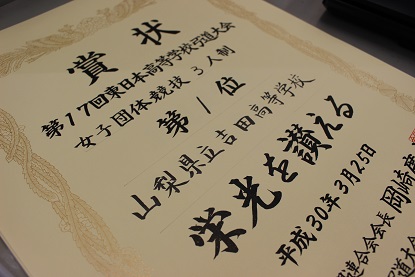 賞状
第17回東日本高等学校弓道大会
女子団体競技 3人制
第1位
山梨県立吉田高等学校
栄光を讃える
平成30年3月25日
連合会会長 岡崎
道大会